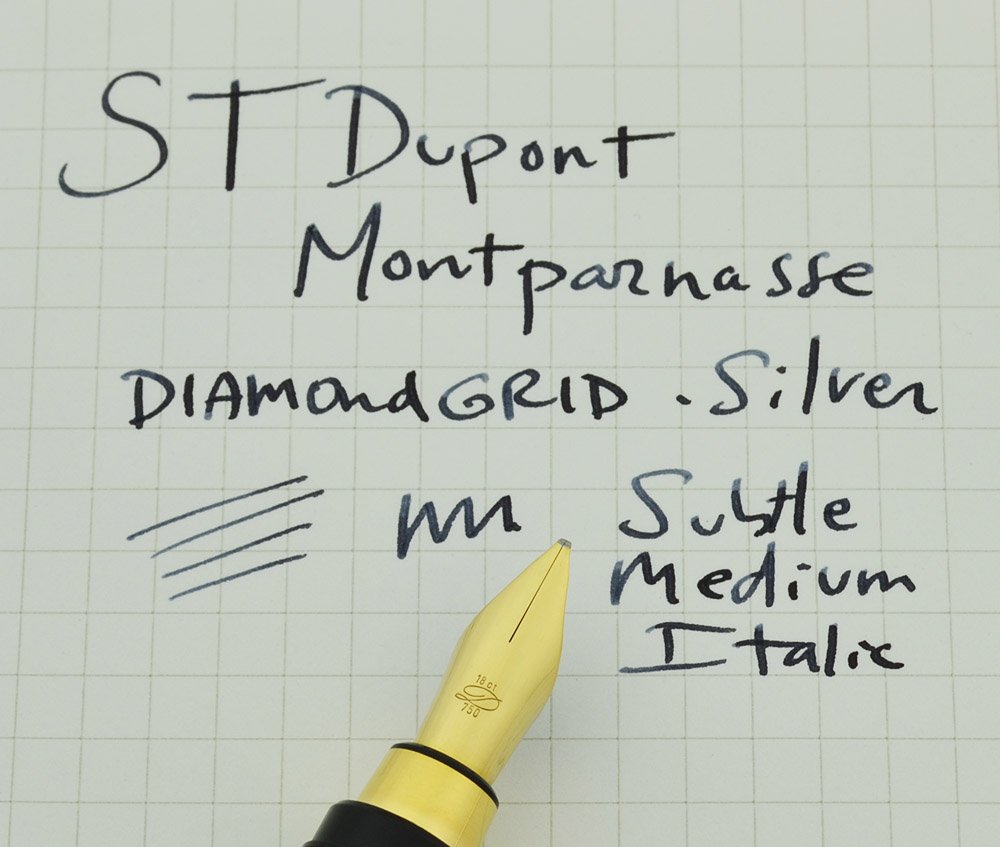 ST Dupont
Montparnasse
DIAMondGRID . Silver
Subtle
Medium
Italic
18 ct
D
750